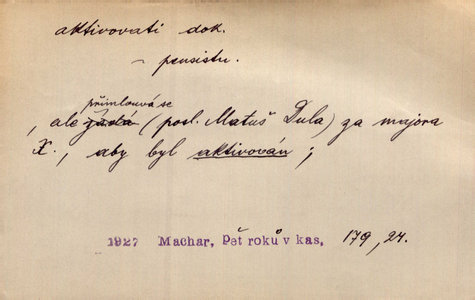 aktivovati dok.
~ pensistu.
přimlouvá se
, ale žádá (posl. Matuš Dula) za majora
X., aby byl aktivován ;
1927 Machar, Pět roků v kas, 179, 24.